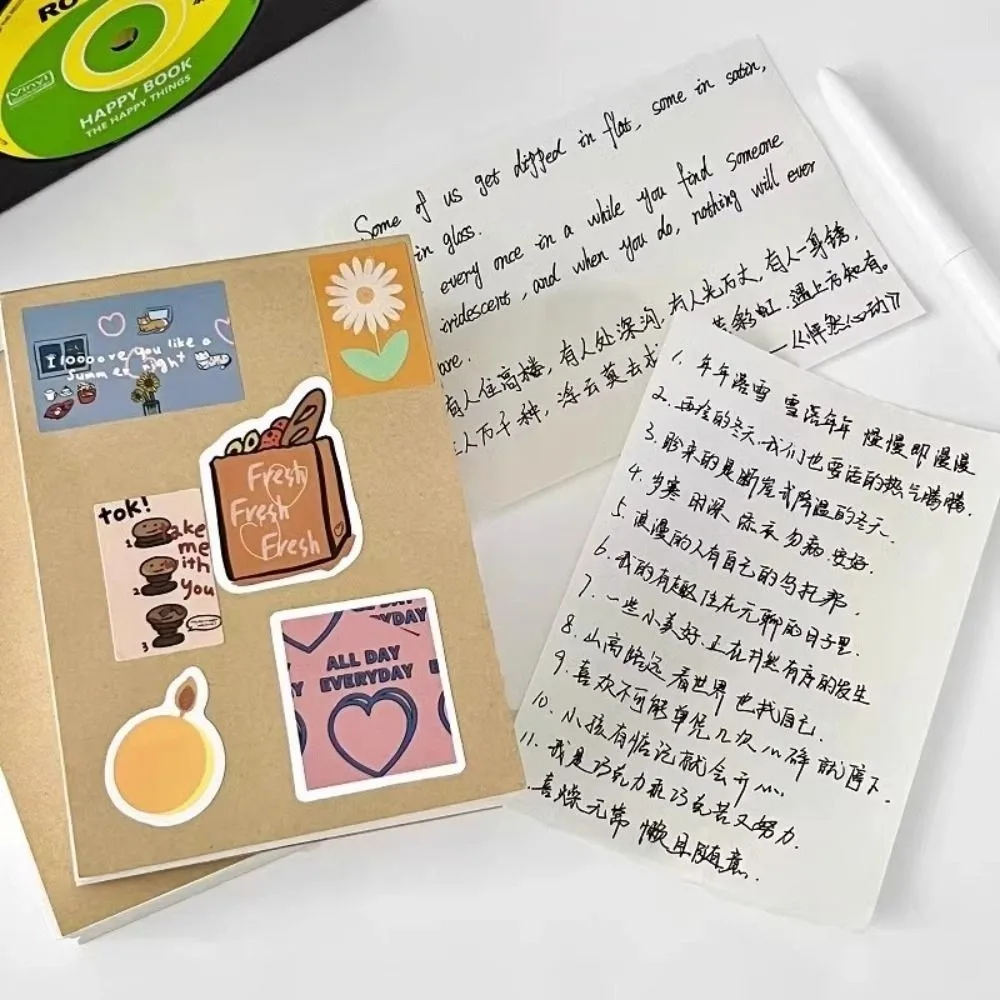 RO
Vinyl
HAPPY BOOK
THE HAPPY THINGS
Some of us get dipped in flat, some in satin,
in gloss.
every once in a while you find someone
iridescent, and when you do, nothing will ever
are.
有人住高楼，有人处深沟，有人光万丈，有人一身锈，
人万千种，浮云莫去求，若彩虹，遇上方知有。
—《怦然心动》
1. 年年落雪 雪落年年 慢慢即漫漫
2. 再冷的冬天，我们也要活的热气腾腾.
3. 盼来的是断崖式降温的冬天.
4. 岁寒 时深 添衣 勿病 安好.
5. 浪漫的人有自己的乌托邦.
6. 我的有趣住在无聊的日子里.
7. 一些小美好 正在井然有序的发生
8. 山高路远 看世界 也找自己.
9. 喜欢不可能单凭几次心碎就停下.
10. 小孩有惦记就会开心
11. 我是巧克力 乖巧 克苦又努力.
喜燥无常 懒且随意.
I loooove you like a
summer night
tok!
ake
me
ith
you
1
2
3
Fresh
Fresh
Fresh
ALL DAY
EVERYDAY